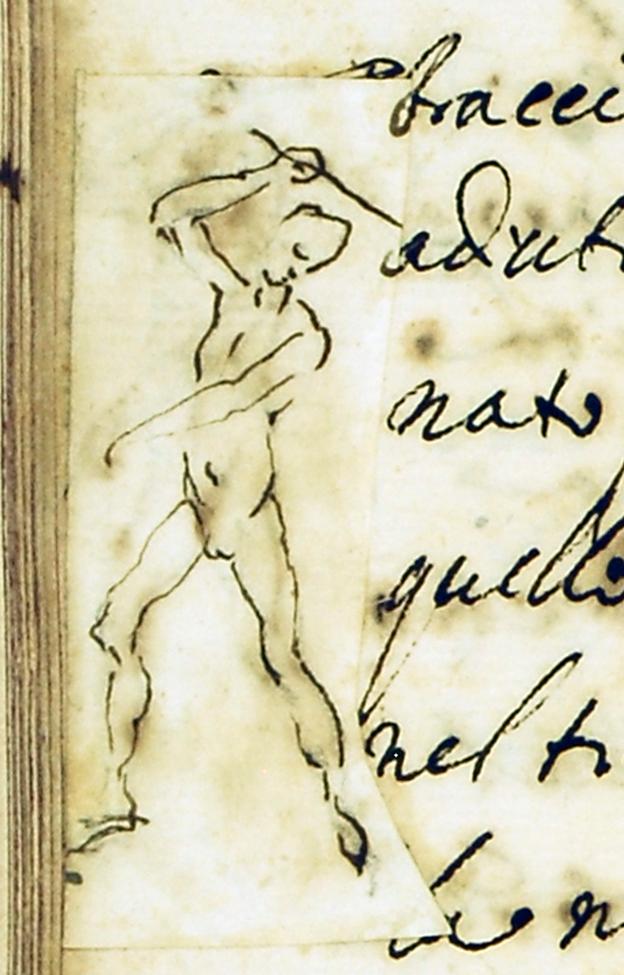 bracci
adut
nato
quello
nel tr